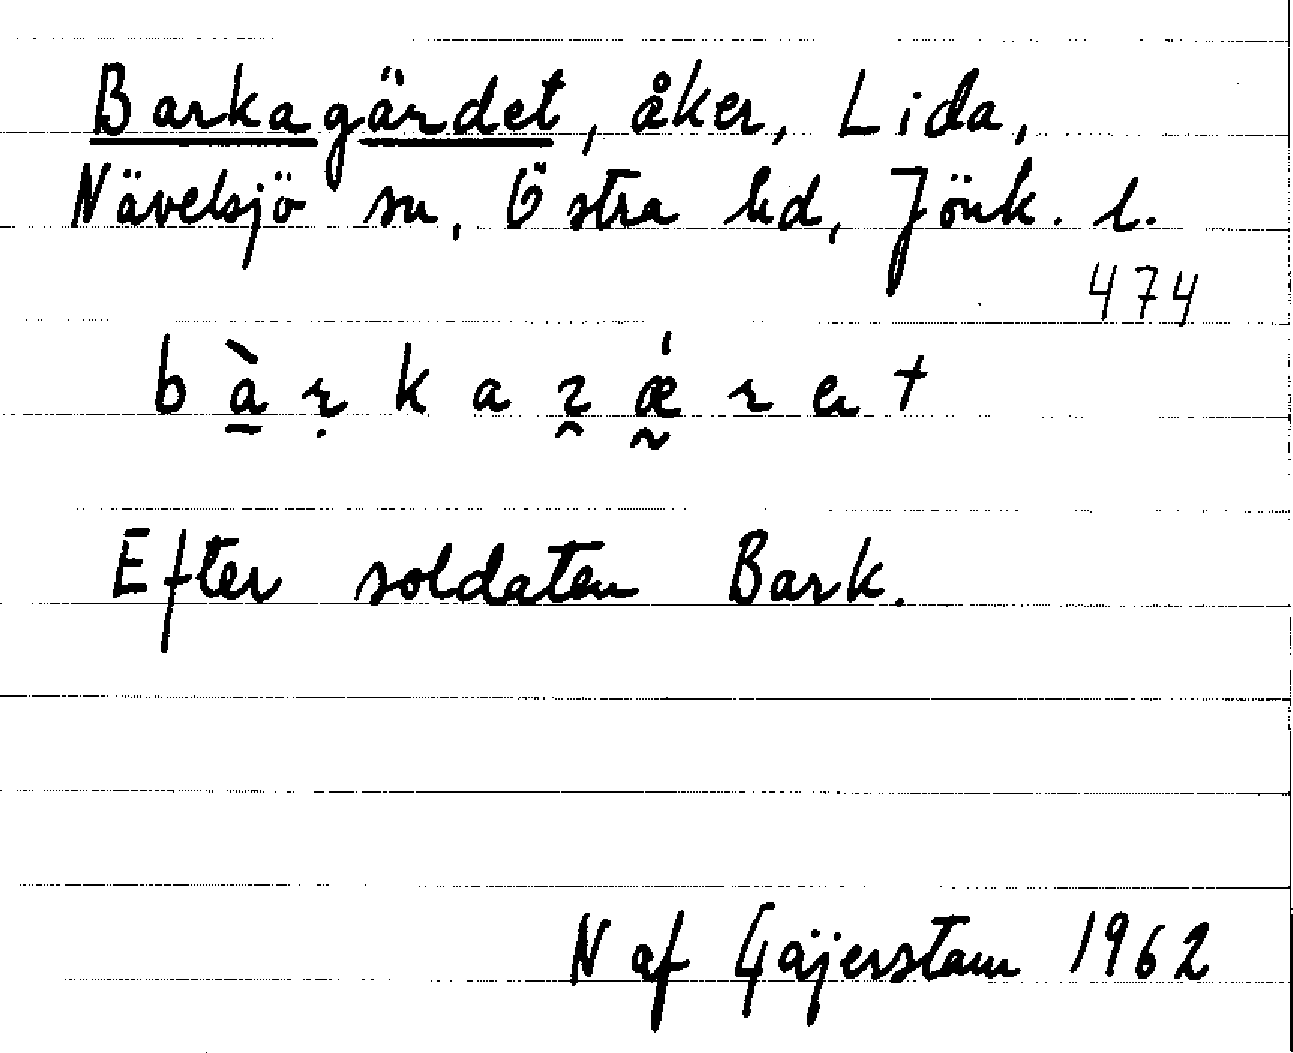 Barkagärdet, åker, Lida,
Nävelsjö sn, Östra hd, Jönk. l.
474
Efter soldaten Bark.
N af Gäijerstam 1962